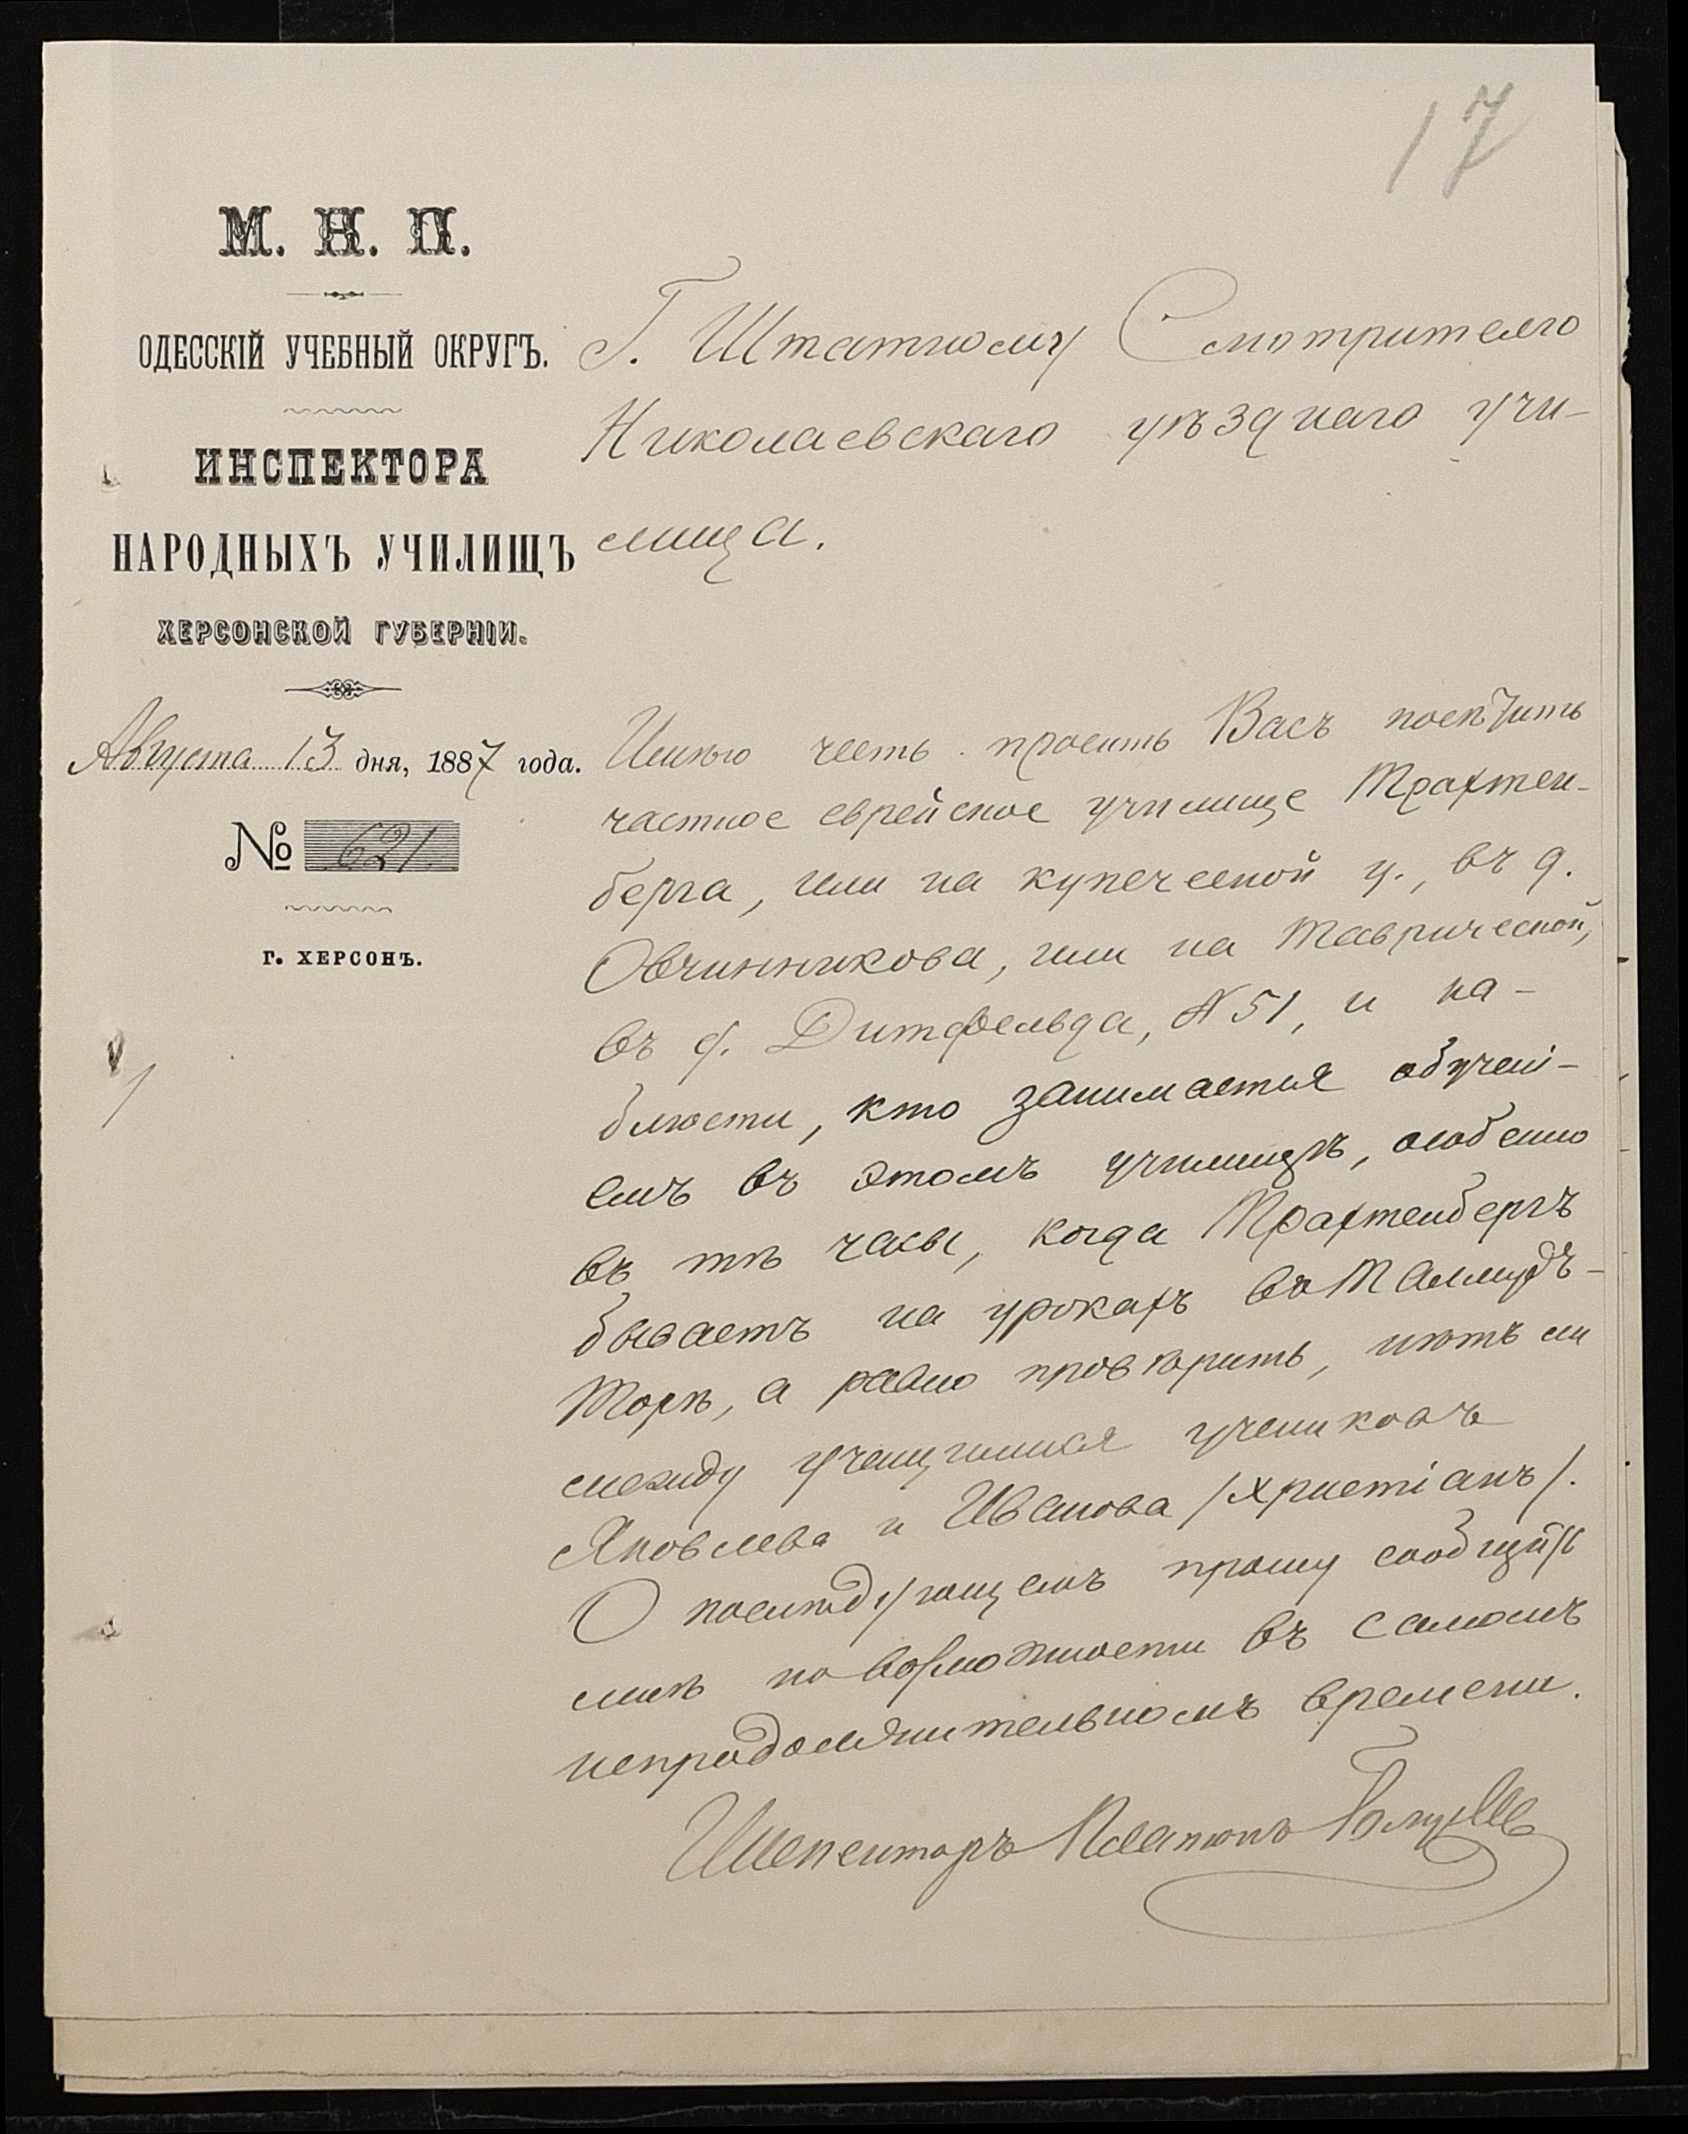 17
М. Н. П.
ОДЕССКІЙ УЧЕБНЫЙ ОКРУГЪ.
ИНСПЕКТОРА
НАРОДНЫХЪ УЧИЛИЩЪ
ХЕРСОНСКОЙ ГУБЕРНІИ.
Августа 13 дня, 1887 года.
№ 621.
Г. ХЕРСОНЪ.
Г. Штатному Смотрителю
Николаевскаго уѣзднаго учи-
лища.
Имѣю честь просить Васъ посѣтить
частное еврейское училище Трахтен-
берга, или на купеческой у., въ д.
Овчинникова, или на Таврической,
въ д. Дитфельда, № 51, и на-
блюсти, кто занимается обучені-
емъ въ этомъ училищѣ, особенно
въ тѣ часы, когда Трахтенбергъ
бываетъ на урокахъ въ Талмудъ-
Торѣ, а равно провѣрить, нѣтъ ли
между учащимися учениковъ
Яковлева и Иванова /христіанъ/.
О послѣдующемъ прошу сообщить
мнѣ по возможности въ самомъ
непродолжительномъ времени.
Инспекторъ Платонъ